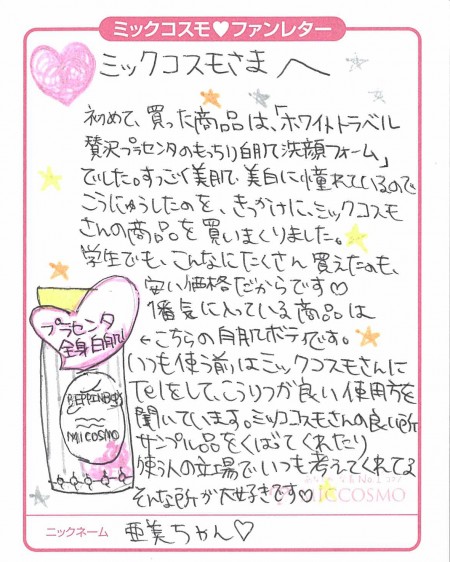 ミックコスモ♥ファンレター
ミックコスモさまへ
初めて、買った商品は、「ホワイトトラベル
贅沢プラセンタのもっちり白肌洗顔フォーム」
でした。すっごく美肌、美白に憧れているので
こうにゅうしたのを、きっかけに、ミックコスモ
さんの商品を買いまくりました。
学生でも、こんなにたくさん買えたのも、
安い価格だからです♡
1番気に入っている商品は
←こちらの白肌ボディです。
プラセンタ
全身白肌
MICOSMO
いつも使う前はミックコスモさんに
Telをして、こうりつが良い使用方を
聞いています。ミックコスモさんの良い所
サンプル品をくばてくれたり
使う人の立場でいつも考えてくれてる
そんな所が大好きです♡
MICCOSMO
ニックネーム 亜美ちゃん♡